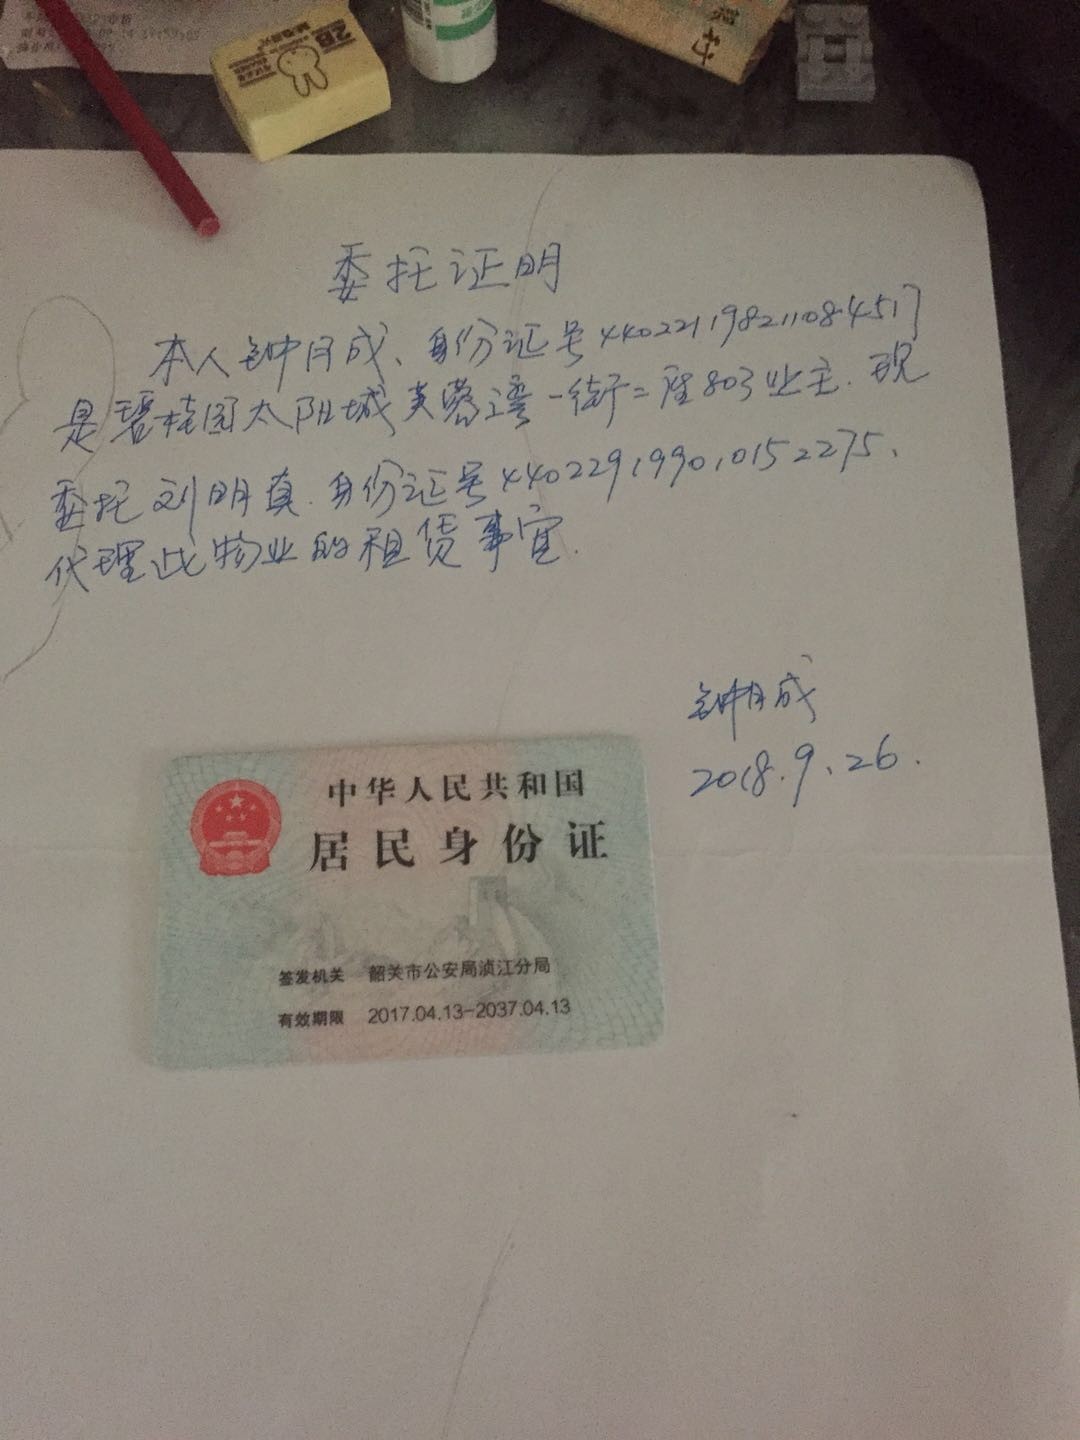 2B
委托证明
本人钟月成、身份证号440221198211084517
是碧桂园太阳城芙蓉湾一街二座803业主.现
委托刘明真.身份证号440229199010152275、
代理此物业的租赁事宜.
钟月成
2018.9.26.
中华人民共和国
居民身份证
签发机关 韶关市公安局浈江分局
有效期限 2017.04.13-2037.04.13